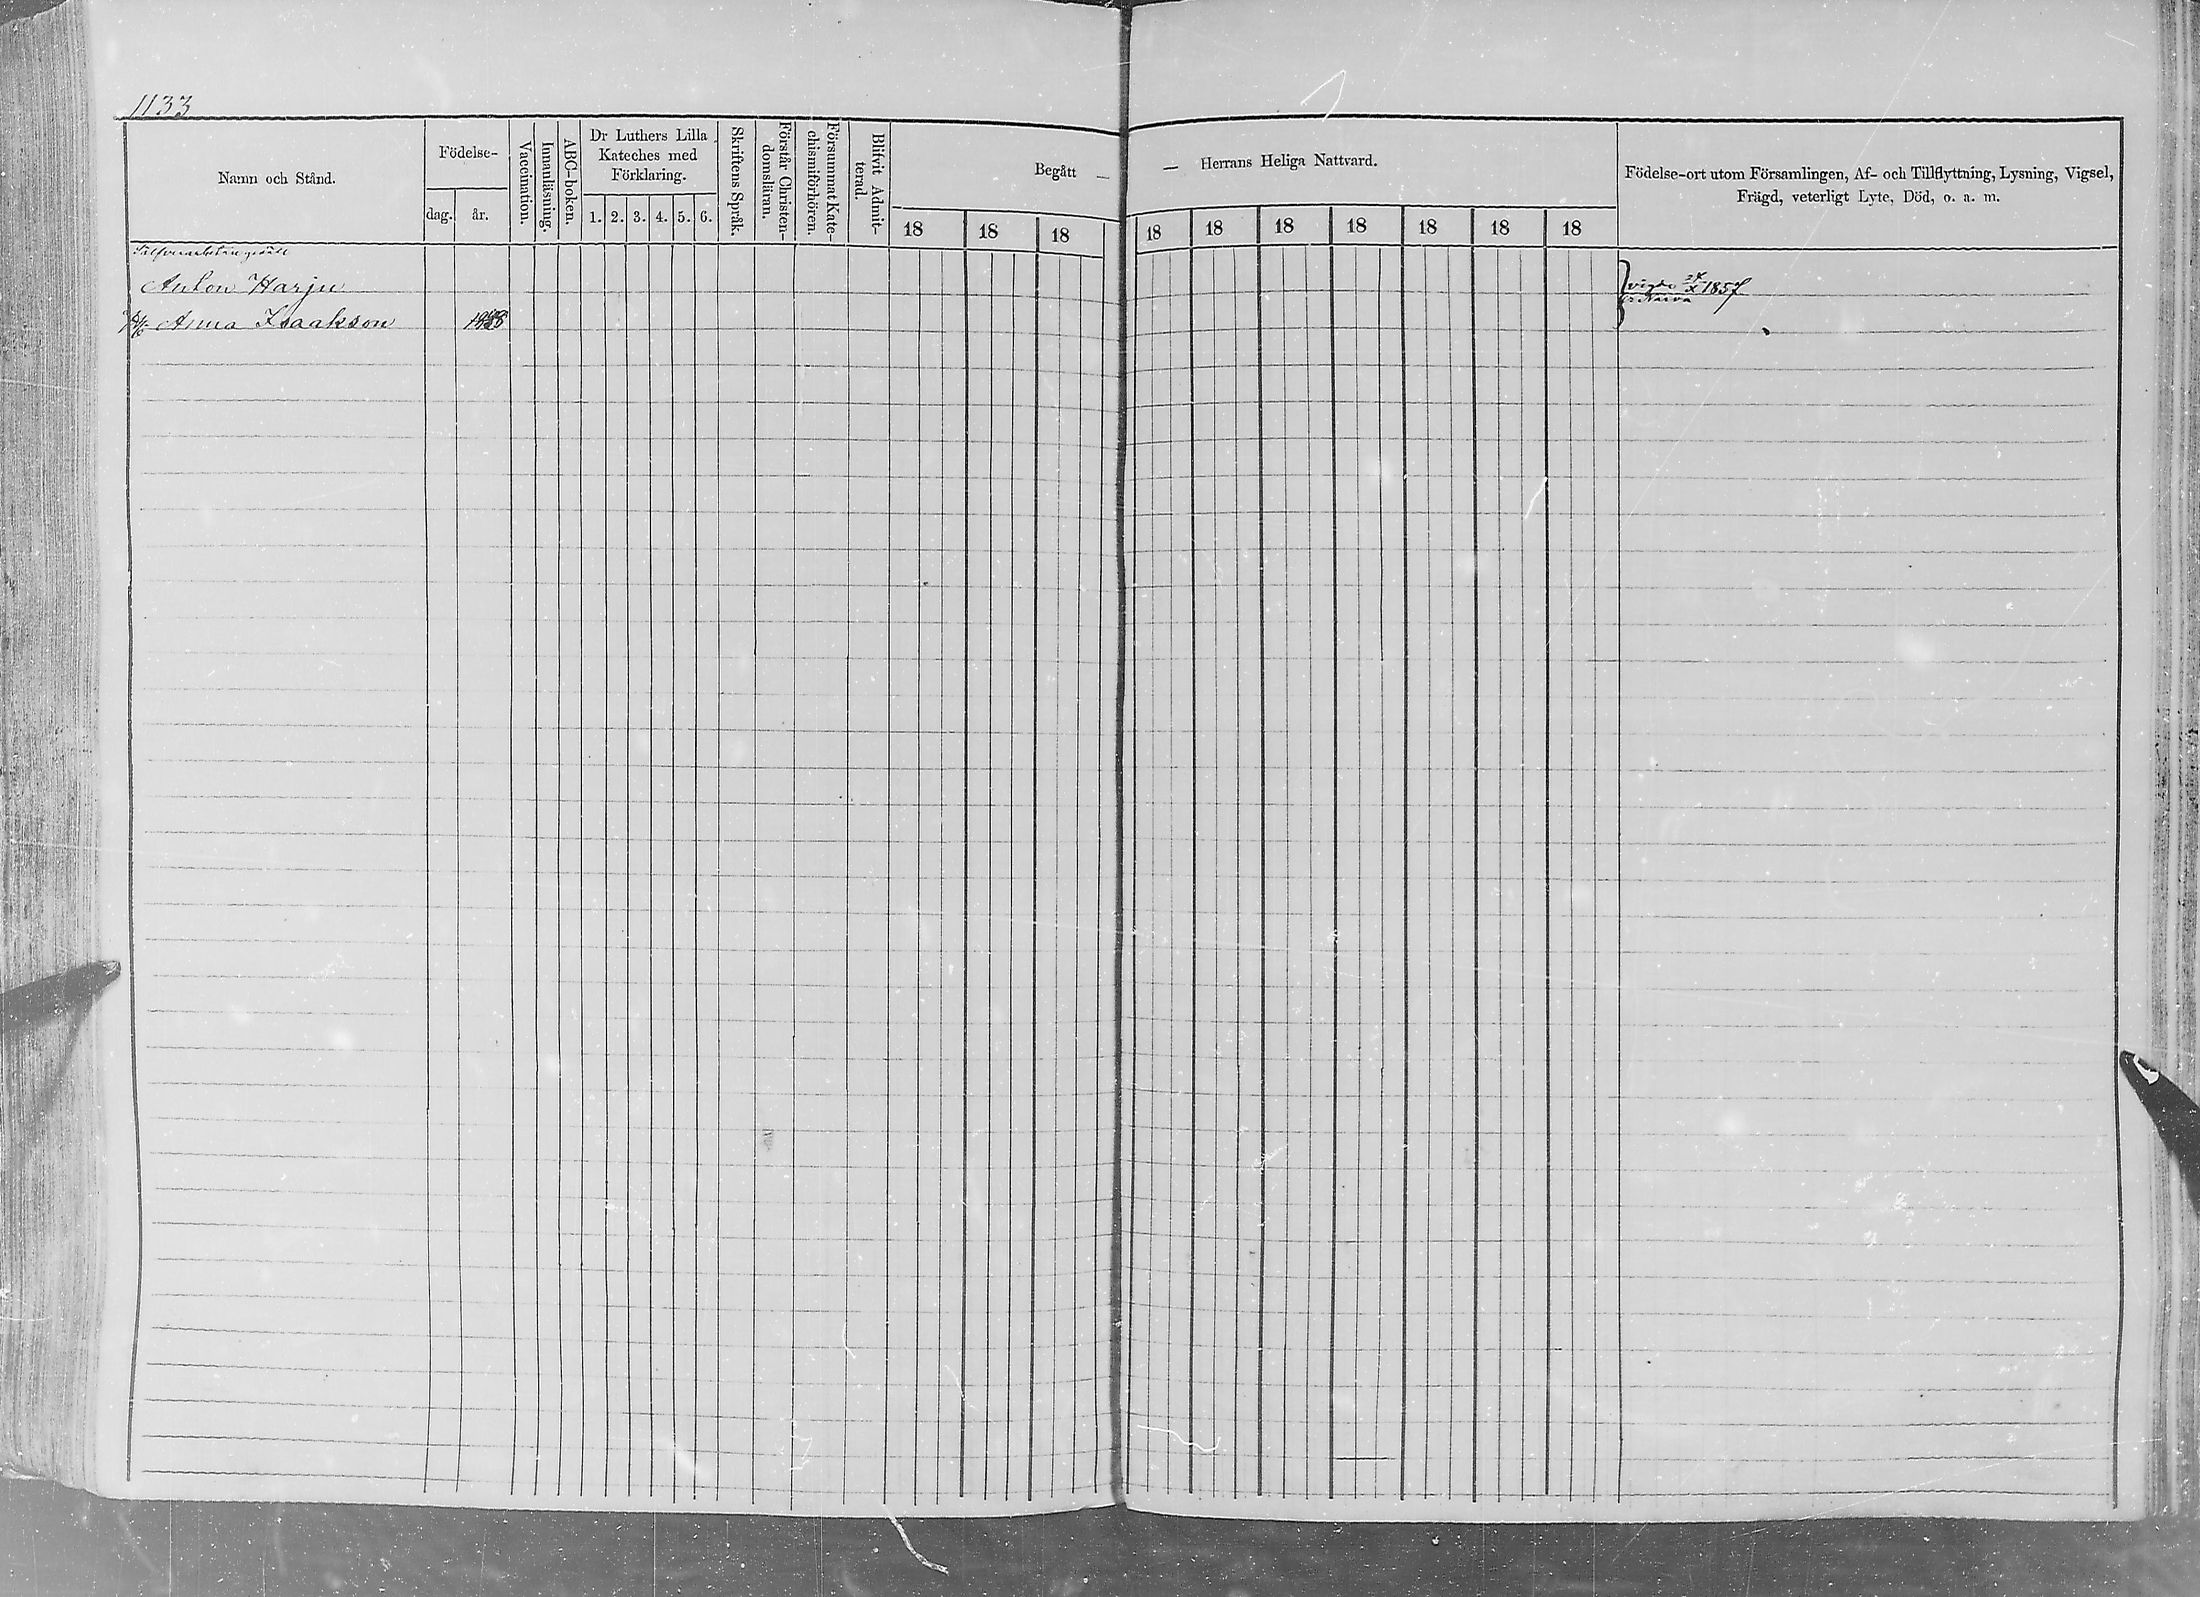 1133
Namn och Stånd.
Födelse-
dag.
år.
Vaccination.
Innanläsning.
ABC-boken.
Dr Luthers Lilla
Kateches med
Förklaring.
1. 2. 3. 4. 5. 6.
Skriftens Språk.
Förstår Christen-
domsläran.
Försummat Kate-
chismiförhören.
Blifvit Admit-
terad.
Begått —
18 18 18
— Herrans Heliga Nattvard.
18 18 18 18 18 18 18
Födelse-ort utom Församlingen, Af- och Tillflyttning, Lysning, Vigsel,
Frägd, veterligt Lyte, Död, o. a. m.
Anton Harju
Anna Isaakson
vigda 1857